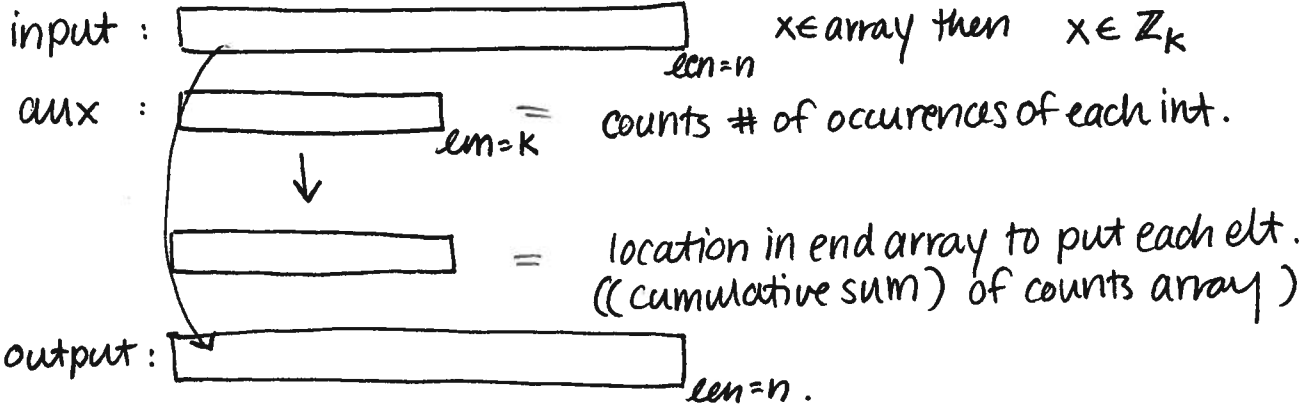 input : len=n x∈array then x∈ℤk
aux : len=k = counts # of occurences of each int.
= location in end array to put each elt.
((cumulative sum) of counts array)
output: len=n.